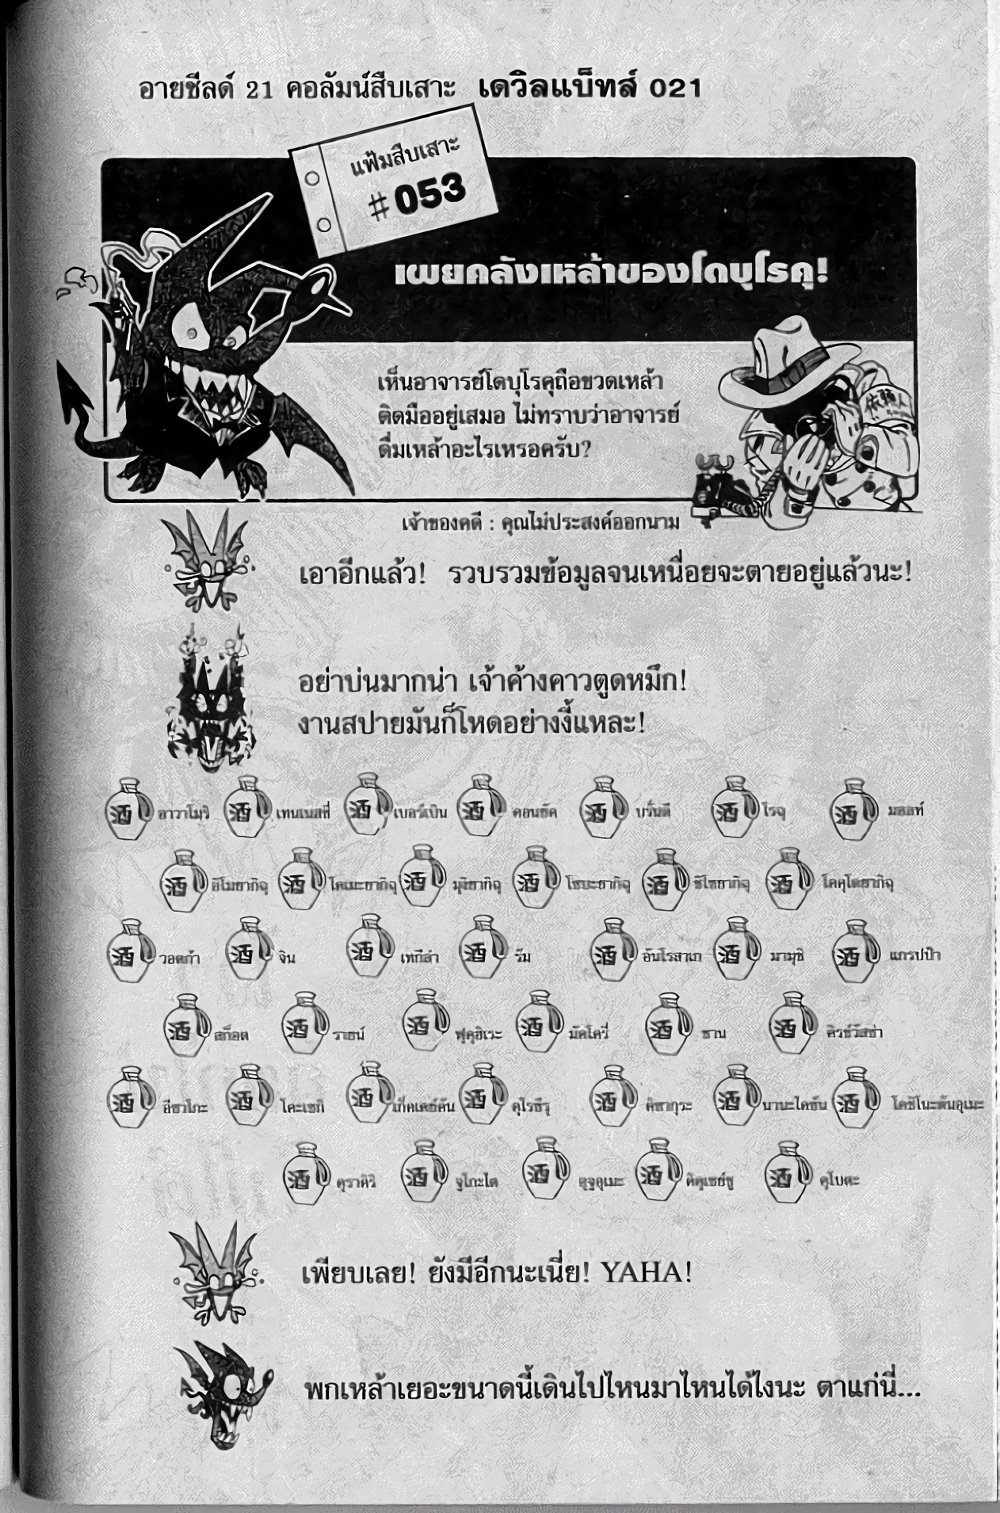 อายชีลด์ 21 คอลัมน์สืบเสาะ เดวิลแบ็ทส์ 021
แฟ้มสืบเสาะ
#053
เผยคลังเหล้าของโดบุโรคุ!
เห็นอาจารย์โดบุโรคุถือขวดเหล้า
ติดมืออยู่เสมอ ไม่ทราบว่าอาจารย์
ดื่มเหล้าอะไรเหรอครับ?
เจ้าของคดี : คุณไม่ประสงค์ออกนาม
เอาอีกแล้ว! รวบรวมข้อมูลจนเหนื่อยจะตายอยู่แล้วนะ!
อย่าบ่นมากน่า เจ้าค้างคาวตูดหมึก!
งานสปายมันก็โหดอย่างงี้แหละ!
酒 อาวาโมริ 酒 เทนเนสซี่ 酒 เบอร์เบิน 酒 คอนยัค 酒 บรั่นดี 酒 ไรฉุ 酒 มอลท์
酒 อิโมยากิฉุ 酒 โคเมะยากิฉุ 酒 มุงิยากิฉุ 酒 โซบะยากิฉุ 酒 ชิโซยากิฉุ 酒 โคคุโตยากิฉุ
酒 วอดก้า 酒 จิน 酒 เทกีล่า 酒 รัม 酒 อันโรสาเก 酒 มามุชิ 酒 แกรปป้า
酒 สก็อต 酒 ราธน์ 酒 ฟุคุฮิเระ 酒 มัคโครี่ 酒 ซาน 酒 คิรช์วัสซ่า
酒 อีซาโกะ 酒 โคะเซกิ 酒 เก็คเคย์คัน 酒 คุโรธิรุ 酒 คิซากุระ 酒 นานะไดซัน 酒 โคชิโนะคันอุเมะ
酒 คุราคิริ 酒 จูโกะได 酒 อุจูอุเมะ 酒 คิคุเซย์ชู 酒 คุโบตะ
เพียบเลย! ยังมีอีกนะเนี่ย! YAHA!
พกเหล้าเยอะขนาดนี้เดินไปไหนมาไหนได้ไงนะ ตาแก่นี่...